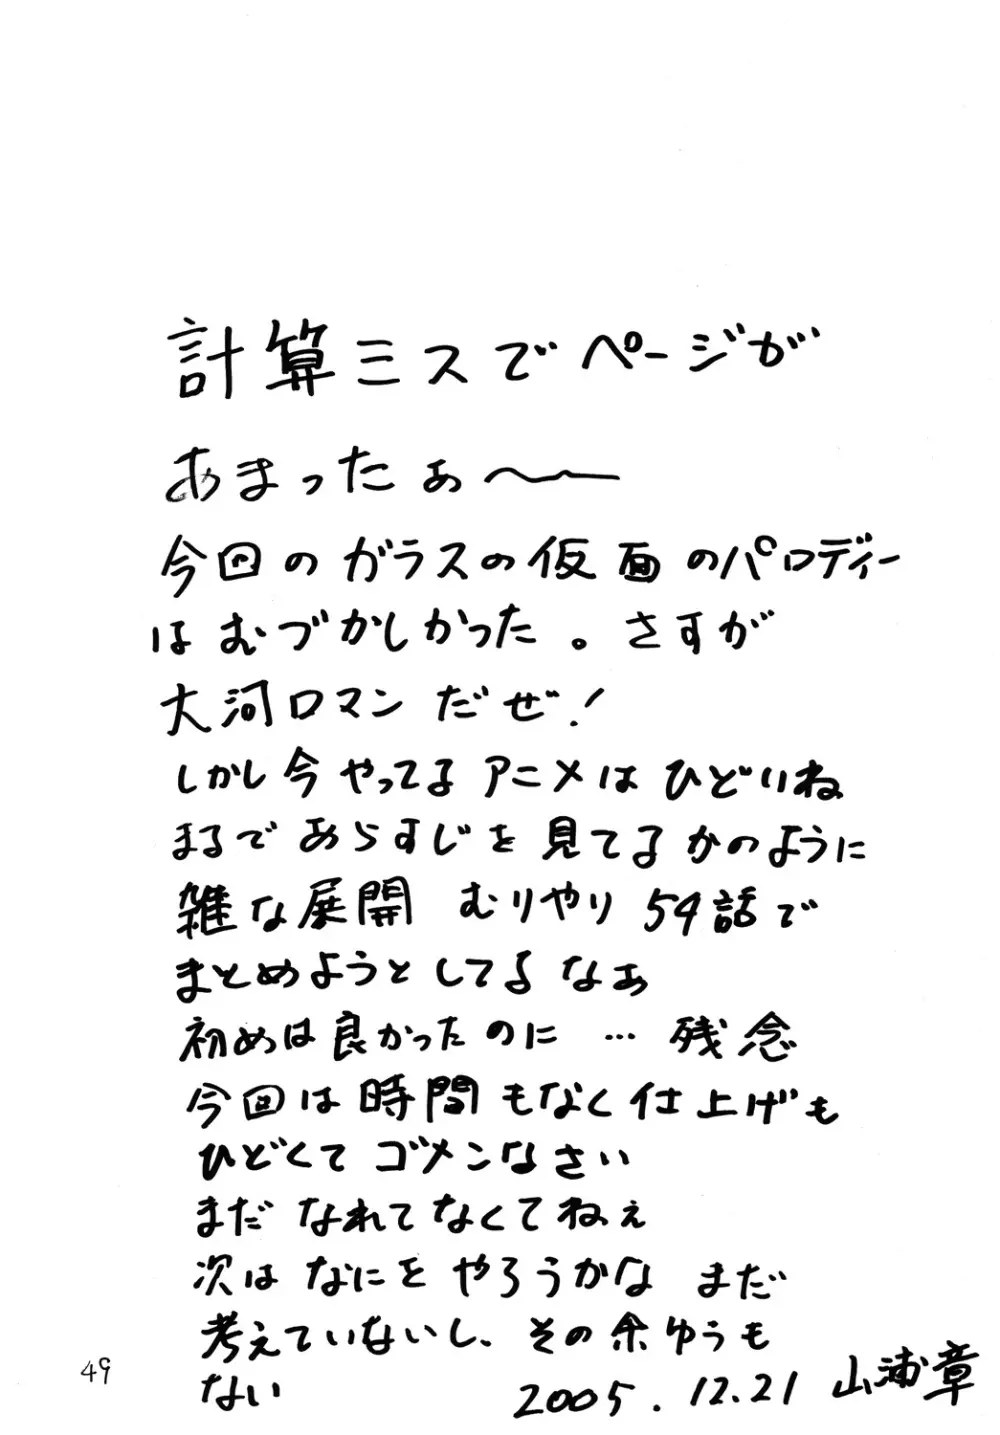 計算ミスでページが
あまったぁ〜
今回のガラスの仮面のパロディー
はむづかしかった。さすが
大河ロマンだぜ!
しかし今やってるアニメはひどいね
まるであらすじを見てるかのように
雑な展開 むりやり54話で
まとめようとしてるなぁ
初めは良かったのに … 残念
今回は時間もなく仕上げも
ひどくてゴメンなさい
まだなれてなくてねぇ
次はなにをやろうかな まだ
考えていないし、その余ゆうも
ない 2005.12.21 山浦章
49